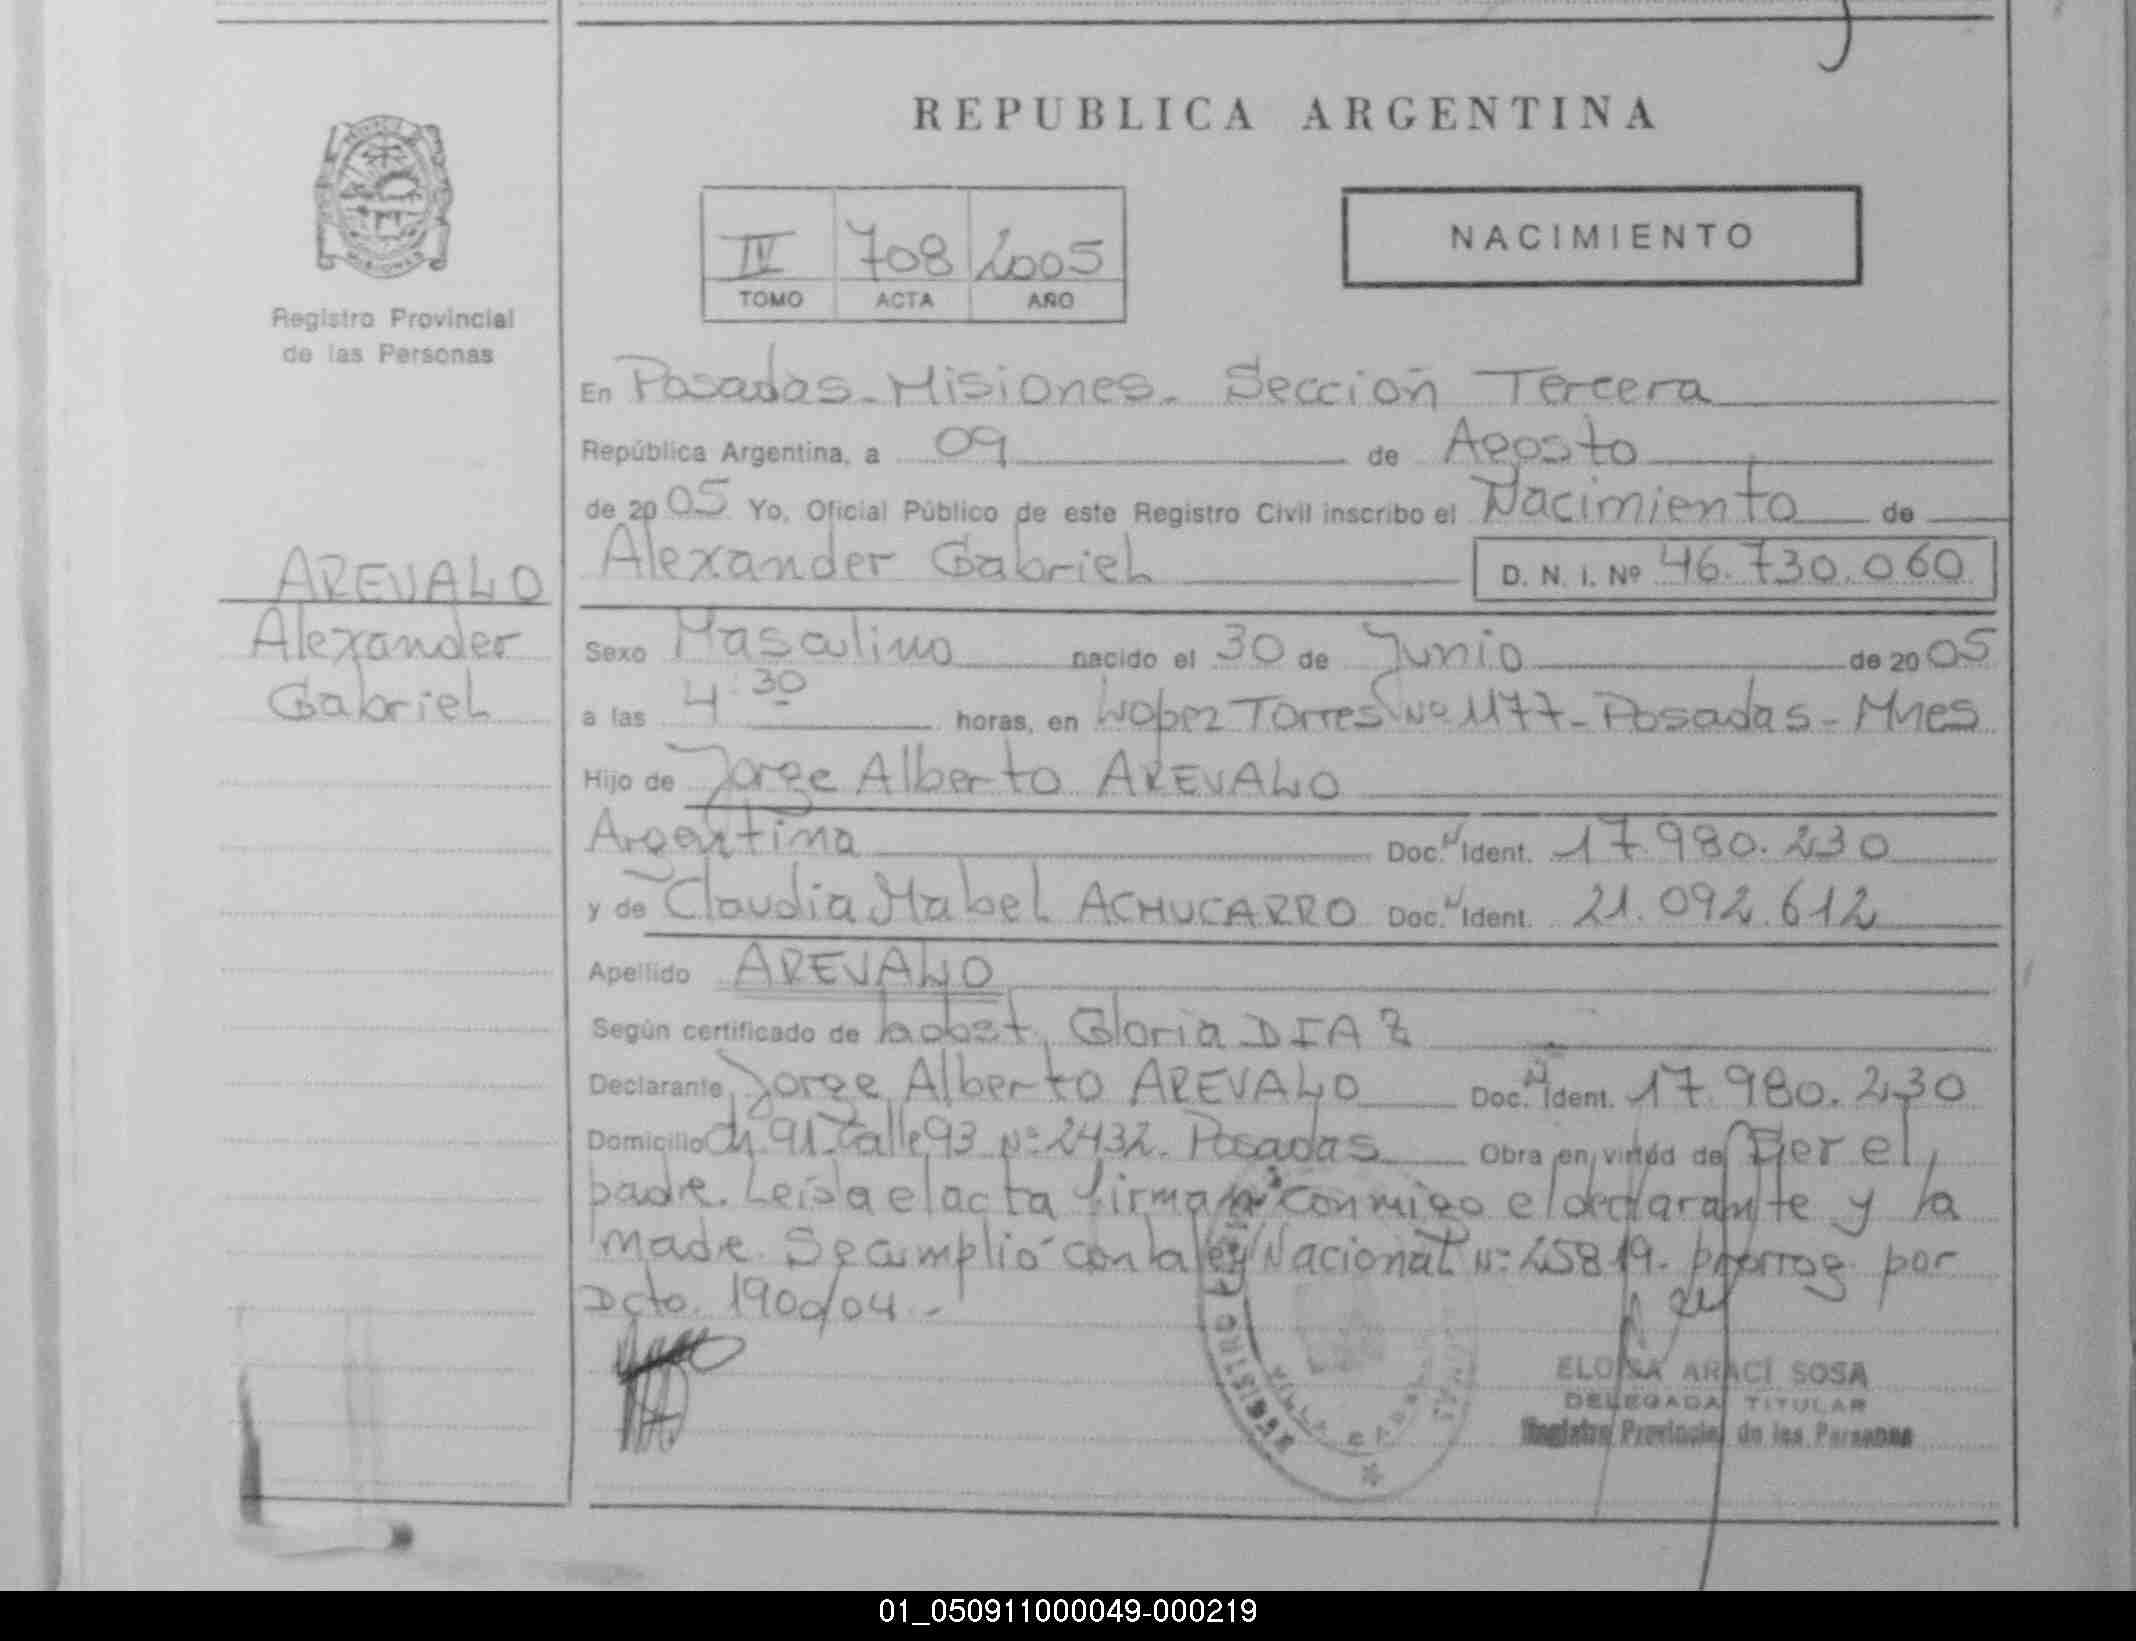 REPUBLICA ARGENTINA
MISIONES
Registro Provincial
de las Personas
IV 708 2005
TOMO ACTA AÑO
NACIMIENTO
En Posadas - Misiones - Sección Tercera
República Argentina, a 09 de Agosto
de 2005 Yo, Oficial Público de este Registro Civil inscribo el Nacimiento de
Alexander Gabriel D. N. I. Nº 46.730.060
AREVALO
Alexander
Gabriel
Sexo Masculino nacido el 30 de Junio de 2005
a las 4.30 horas, en Lopez Torres Nº 1177 - Posadas - Mnes
Hijo de Jorge Alberto AREVALO
Argentina Doc. N Ident. 17.980.230
y de Claudia Mabel ACHUCARRO Doc. N Ident. 21.092.612
Apellido AREVALO
Según certificado de obst. Gloria DIAZ
Declarante Jorge Alberto AREVALO Doc. N Ident. 17.980.230
Domicilio Ch. 91 - Calle 93 Nº 2432. Posadas Obra en virtud de Ser el
padre. Leída el acta firman conmigo el declarante y la
madre. Se cumplió con la ley Nacional Nº 25819. prorrog por
Dcto. 1900/04.-
REGISTRO
ELOISA ARACI SOSA
DELEGADA TITULAR
Registro Provincial de las Personas
01_050911000049-000219